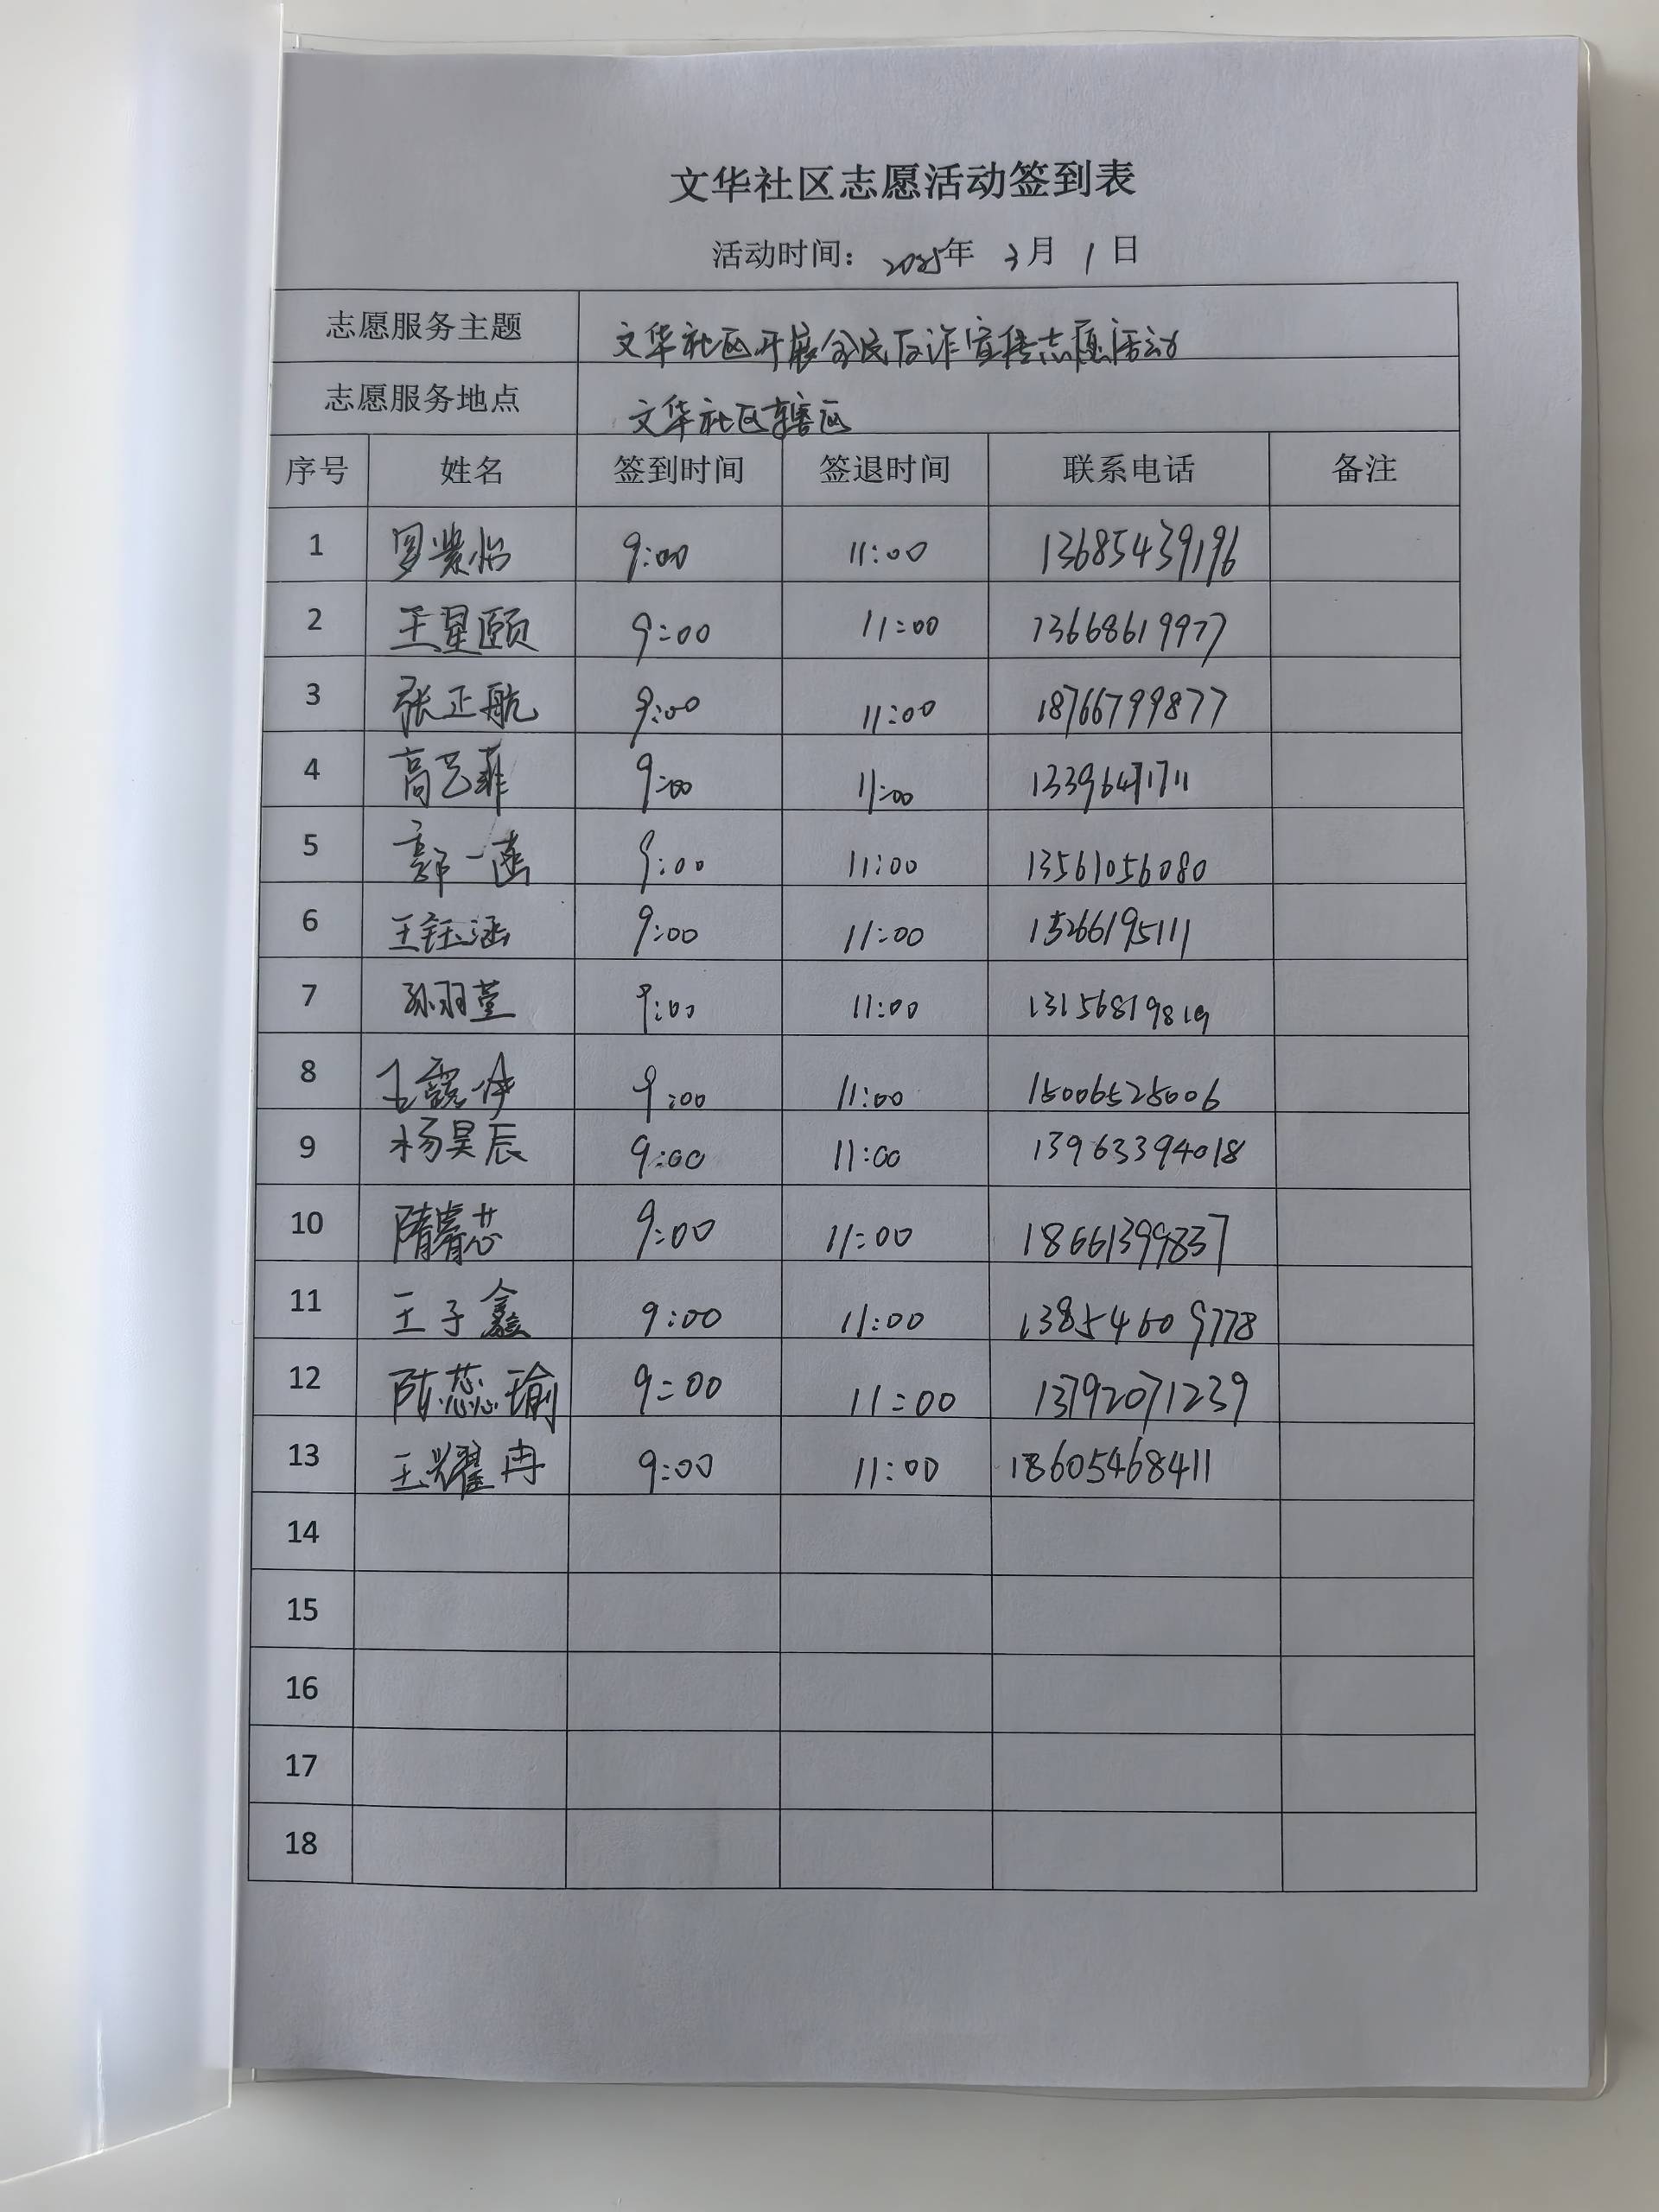 文华社区志愿活动签到表
活动时间：2025年 3月 1日
志愿服务主题 文华社区开展全民反诈宣传志愿活动
志愿服务地点 文华社区辖区
序号 姓名 签到时间 签退时间 联系电话 备注
1 罗紫怡 9:00 11:00 13685439196
2 王星颐 9:00 11:00 13668619977
3 张正航 9:00 11:00 18766799877
4 高艺菲 9:00 11:00
5 郭一菡 9:00 11:00 13561056080
6 王钰涵 9:00 11:00 15266195111
7 孙羽萱 9:00 11:00 13156819819
8 9:00 11:00 15006525006
9 杨昊辰 9:00 11:00 13963394018
10 隋睿芯 9:00 11:00 18661399837
11 王子鑫 9:00 11:00 13854609778
12 陈蕊瑜 9:00 11:00 13792071239
13 王耀冉 9:00 11:00 18605468411
14
15
16
17
18